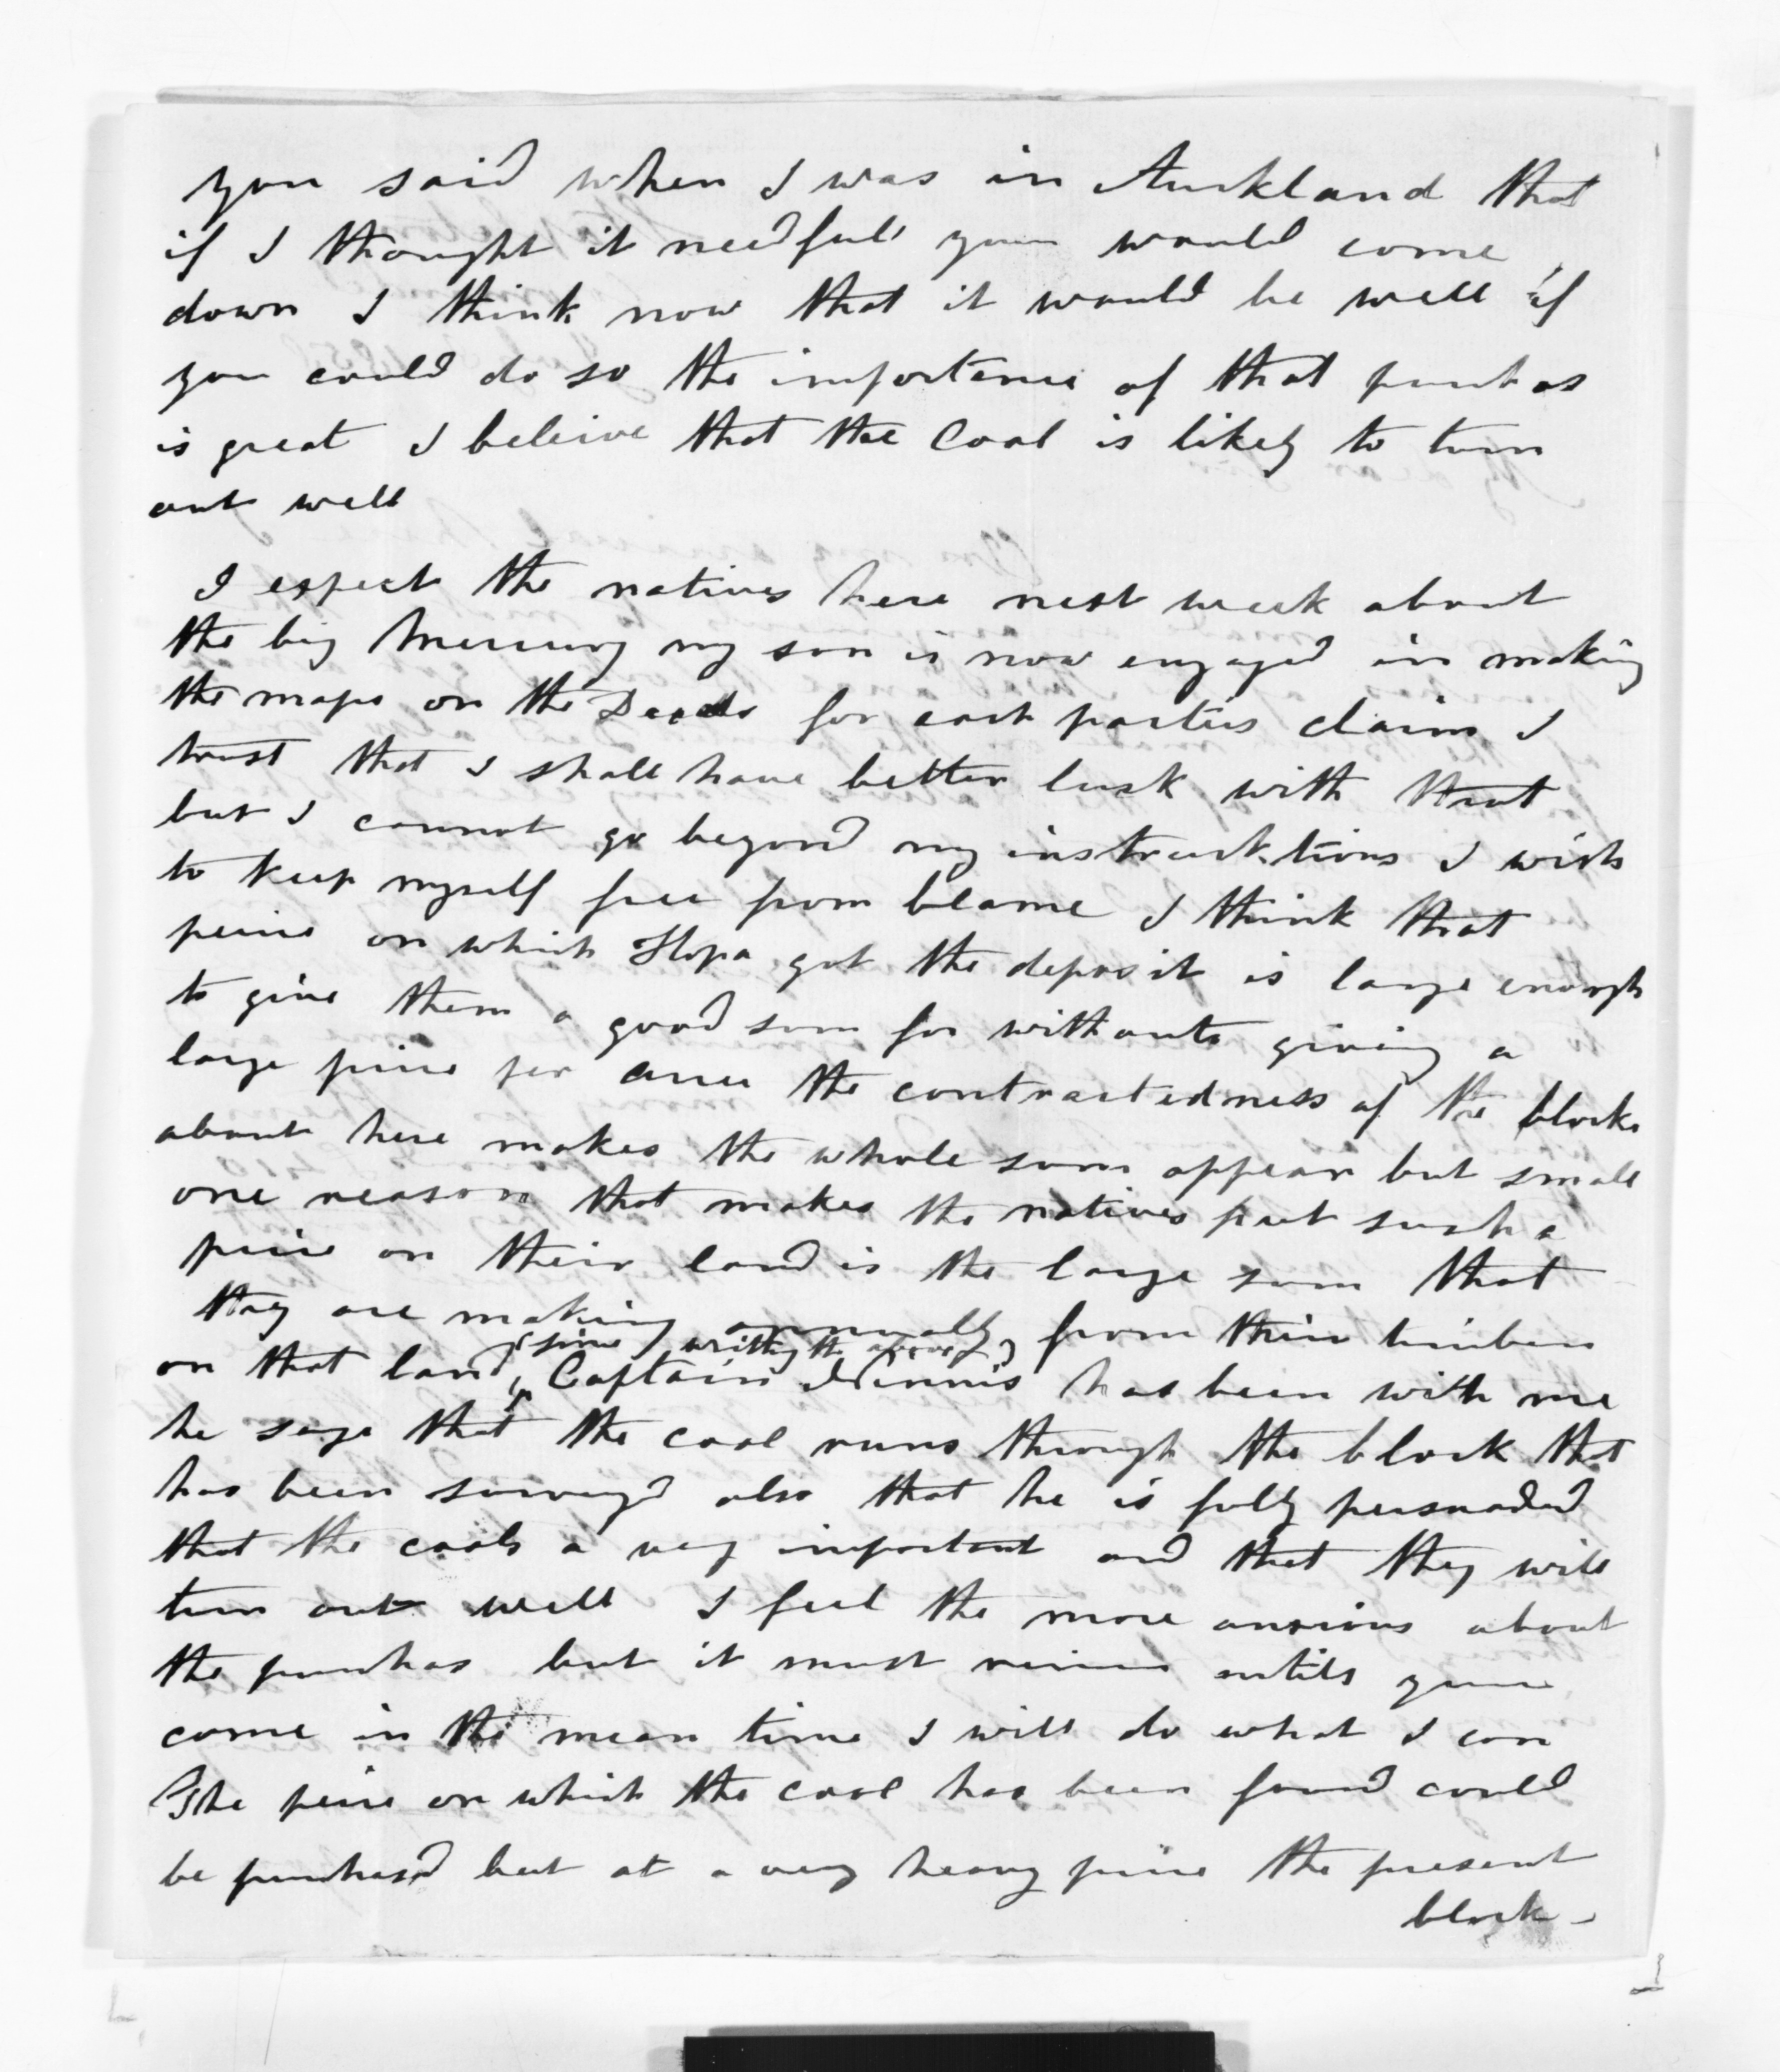 you said when I was in Auckland that
if I thought it needfull you would come
down I think now that it would be well if
you could do so the importance of that purchas
is great I beleive that the Coal is likely to turn
out well
I expect the natives here next week about
the big Mercury my son is now engaged in making
the maps on the Deeds for each parties claim I
trust that I shall have better luck with that
but I cannot go beyond my instructions I wish
to keep myself free from blame I think that
peice on which Hopa got the deposit is large enough
to give them a good sum for without giving a
large price per acree the contractedness of the blocks
about here makes the whole sum appear but small
one reason that makes the natives put such a
price on their land is the large sum that
they are making annually from their timber
(since writing the above)
on that land Captain Ninnis has been with me
he says that the coal runs through the block that
has been survey'd also that he is fully persuaded
that the coals a very important and that they will
turn out well I feel the more anxious about
the purchas but it must untill you
come in the mean time I will do what I can
The peice on which the coal has been found could
be purchasd but at a very heavy price the present
block -